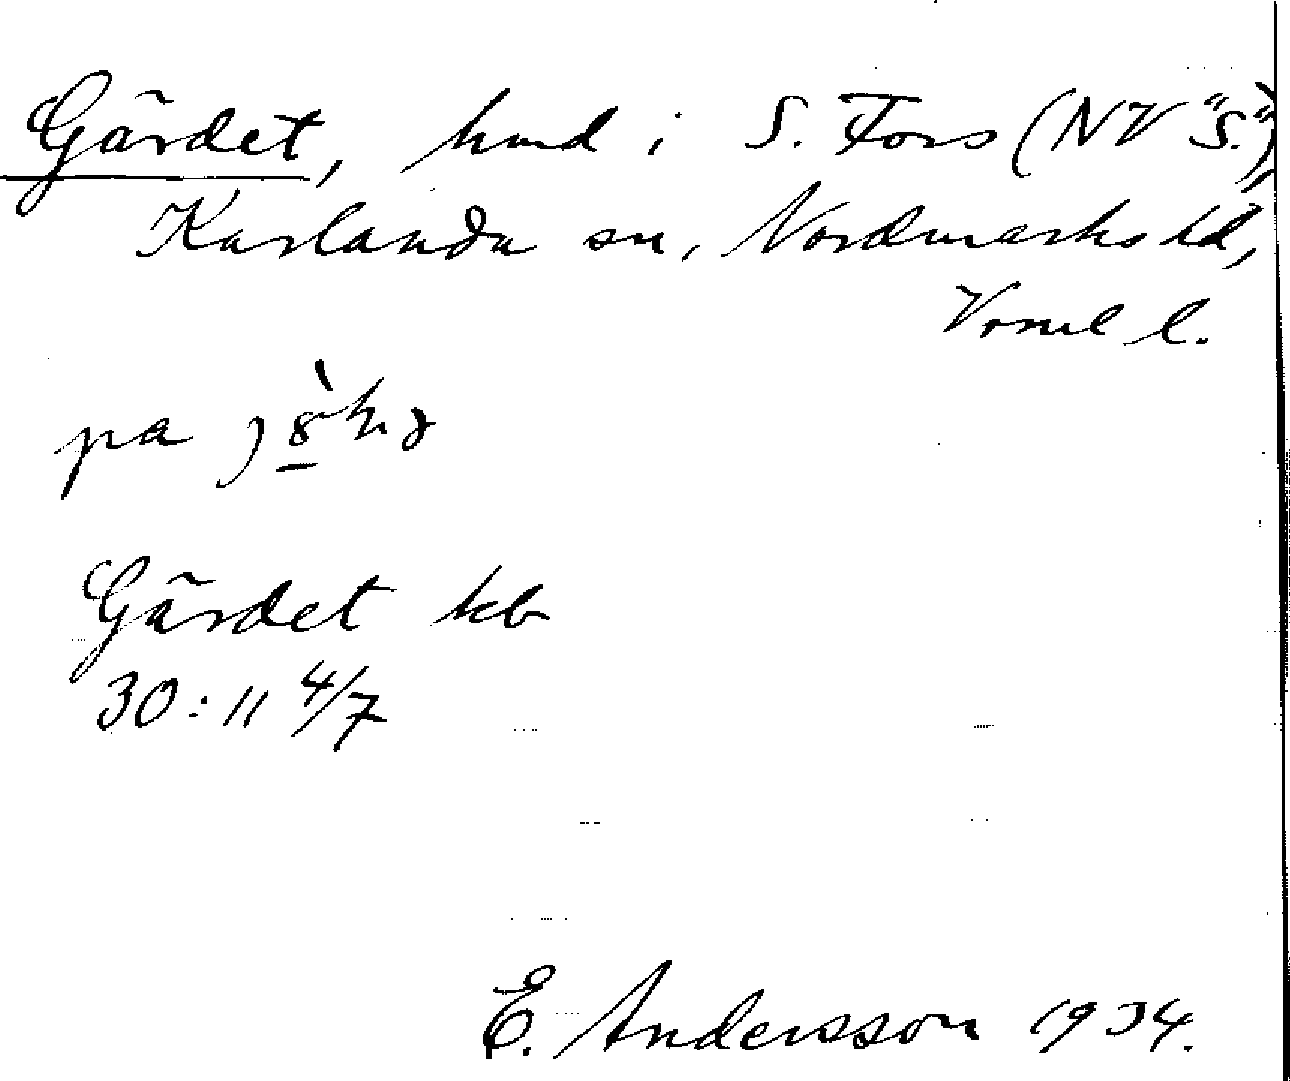 Gärdet, hmd i S. Fors (NV "S."),
Karlanda sn, Nordmarks hd,
Vrml l.
pa
Gärdet kb
30:11 4/7
E. Andersson 1934.